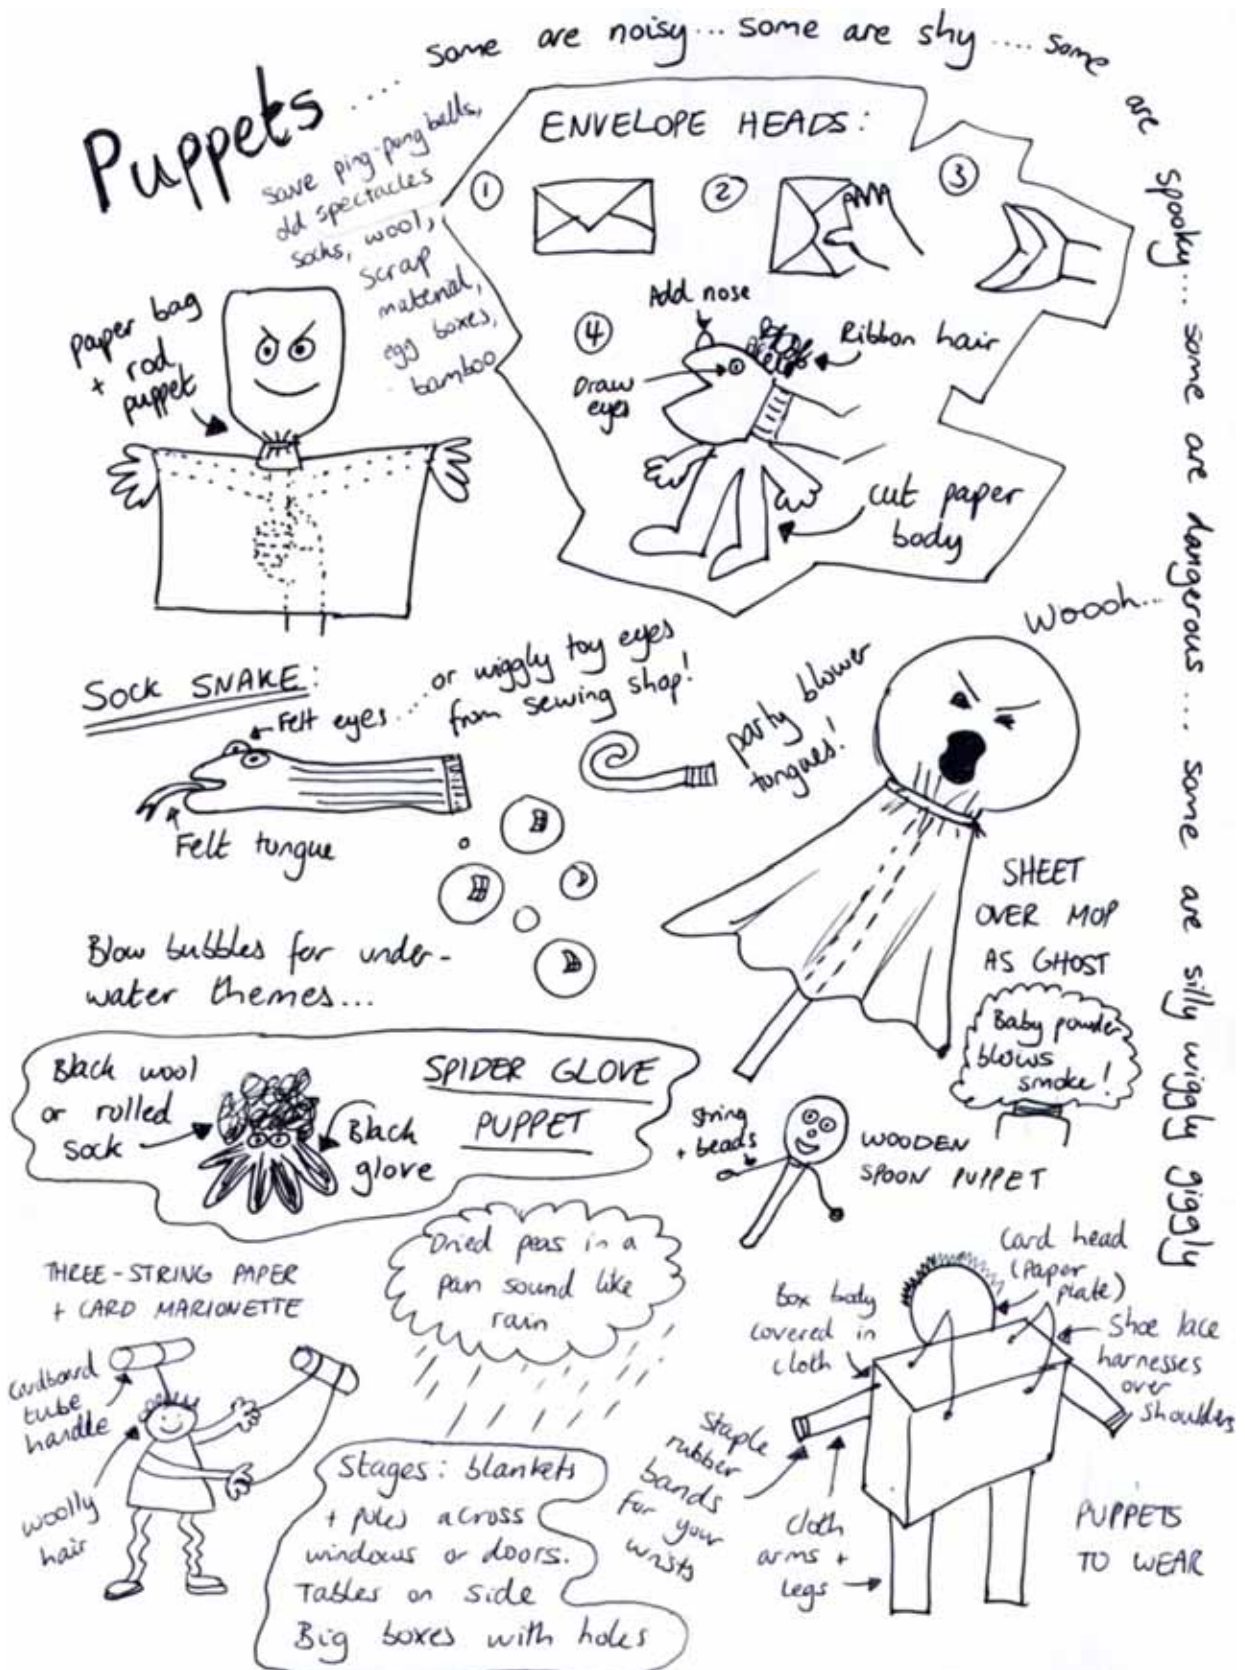 Puppets .....
some are noisy... some are shy .... some are spooky.... some are dangerous.... some are silly wiggly giggly
save ping-pong balls,
old spectacles
socks, wool,
scrap
material,
egg boxes,
bamboo
paper bag
+ rod
puppet
ENVELOPE HEADS:
1
2
3
4
Add nose
Ribbon hair
Draw
eyes
cut paper
body
SOCK SNAKE:
Felt eyes ..... or wiggly toy eyes
from sewing shop!
Felt tongue
party blower
tongues!
Woooh...
SHEET
OVER MOP
AS GHOST
Baby powder
blows
smoke!
Blow bubbles for under-
water themes...
SPIDER GLOVE
PUPPET
Black wool
or rolled
sock
Black
glove
string
+ beads
WOODEN
SPOON PUPPET
THREE-STRING PAPER
+ CARD MARIONETTE
cardboard
tube
handle
woolly
hair
Dried peas in a
pan sound like
rain
Stages: blankets
+ poles across
windows or doors.
Tables on side
Big boxes with holes
Card head
(paper
plate)
Box body
covered in
cloth
Shoe lace
harnesses
over
shoulders
Staple
rubber
bands
for your
wrists
cloth
arms +
legs
PUPPETS
TO WEAR